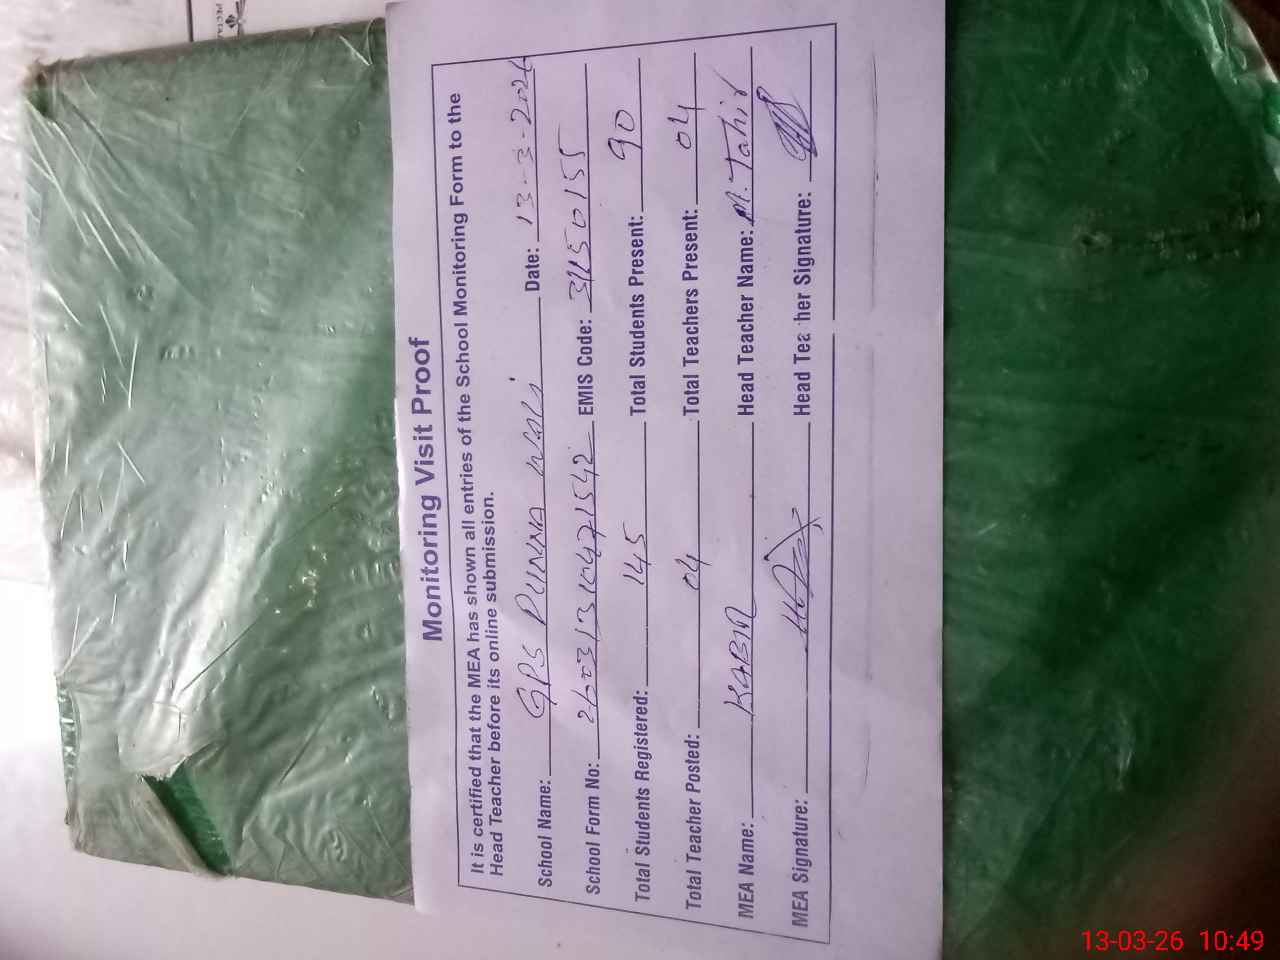 PECTA
Monitoring Visit Proof
It is certified that the MEA has shown all entries of the School Monitoring Form to the
Head Teacher before its online submission.
School Name: GPS PUNNA WALI Date: 13-3-2026
School Form No: EMIS Code: 31150155
Total Students Registered: 145 Total Students Present: 90
Total Teacher Posted: 04 Total Teachers Present: 04
MEA Name: KABIR Head Teacher Name: M. Tahir
MEA Signature: Head Teacher Signature:
13-03-26 10:49